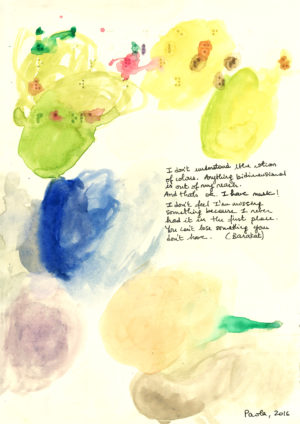 I don't understand the notion
of colour. Anything bidimensional
is out of my reach.
And that's ok. I have music!
I don't feel I'm missing
something because I never
had it in the first place.
You can't lose something you
don't have. (Barakat)
Paola, 2016